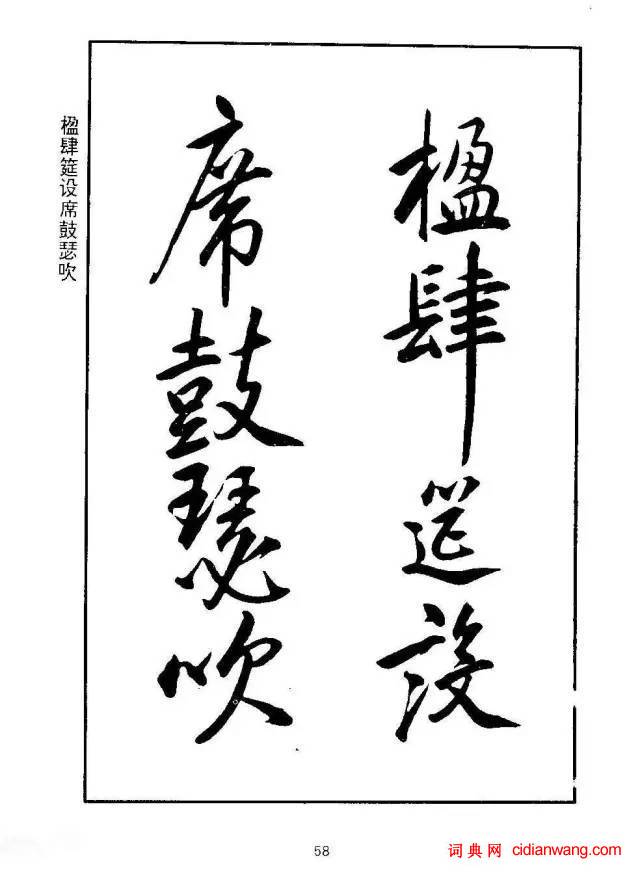 楹肆筵設
席鼓瑟吹
楹肆筵设席鼓瑟吹
58
词典网 cidianwang.com